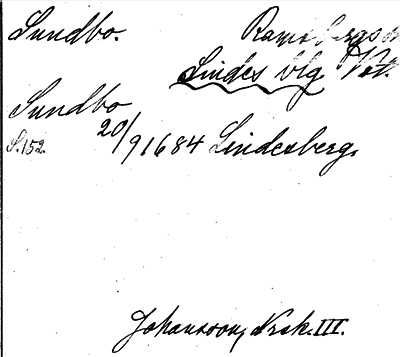 Sundbo. Ramsbergs
Lindes blg Vstm.
Sundbo
S. 152. 20/9 1684 Lindesberg,
Johansson, Nrsk. III.